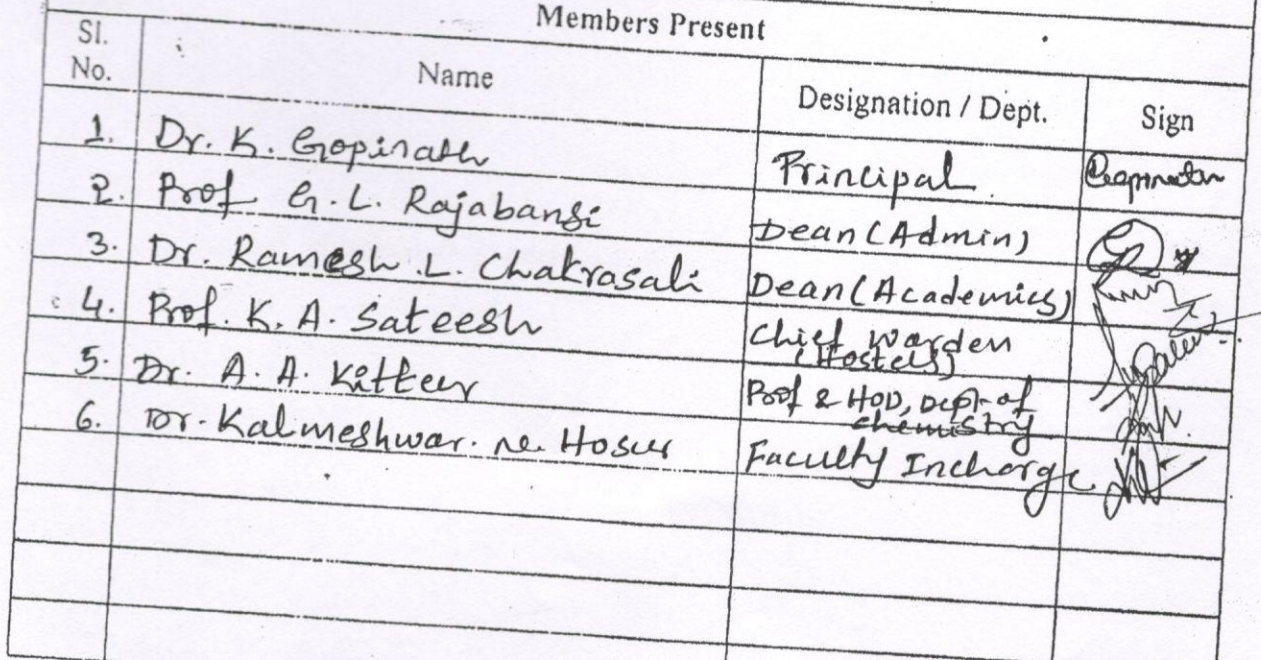 Members Present
Sl. No. Name Designation / Dept. Sign
1. Dr. K. Gopinath Principal Gopinath
2. Prof G. L. Rajabansi Dean (Admin)
3. Dr. Ramesh .L. Chakrasali Dean (Academics)
4. Prof. K. A. Sateesh Chief Warden (Hostels)
5. Dr. A. A. Kittur Prof & HOD, Dept. of chemistry
6. Dr. Kalmeshwar. N. Hosur Faculty Incharge